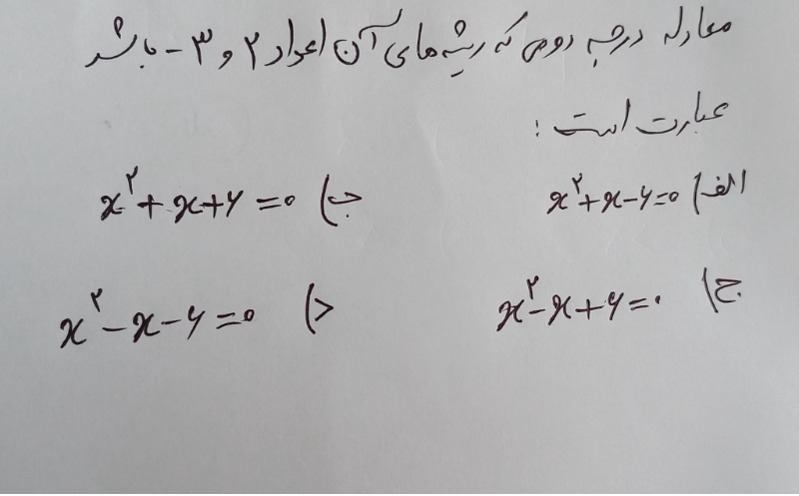 معادله درجه دومی که ریشه های آن اعداد ۲ و ۳- باشد
عبارت است :
الف) x²+x-۶=۰ ب) x²+x+۶=۰
ج) x²-x+۶=۰ د) x²-x-۶=۰